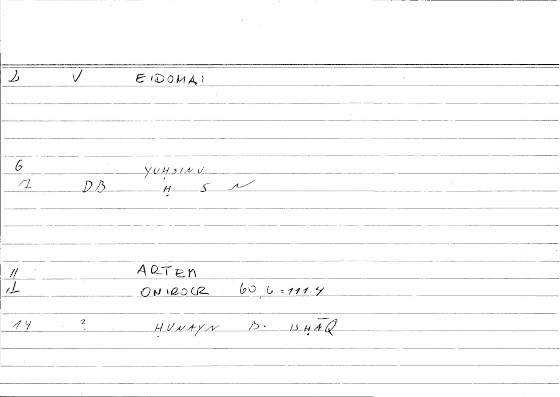 2 V EIDOMAI
6 YUḤSINU
1 DB Ḥ S N
11 ARTEM
11 ONIROCR 60,6=111.4
14 ? ḤUNAYN B. ISḤĀQ